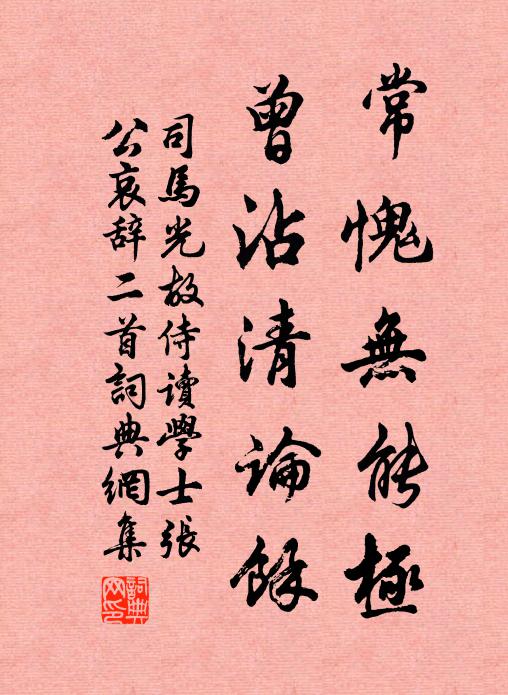 常愧無能極
曾沾清論餘
司馬光故侍讀學士張
公哀辞二首詞典網集
詞典
网印